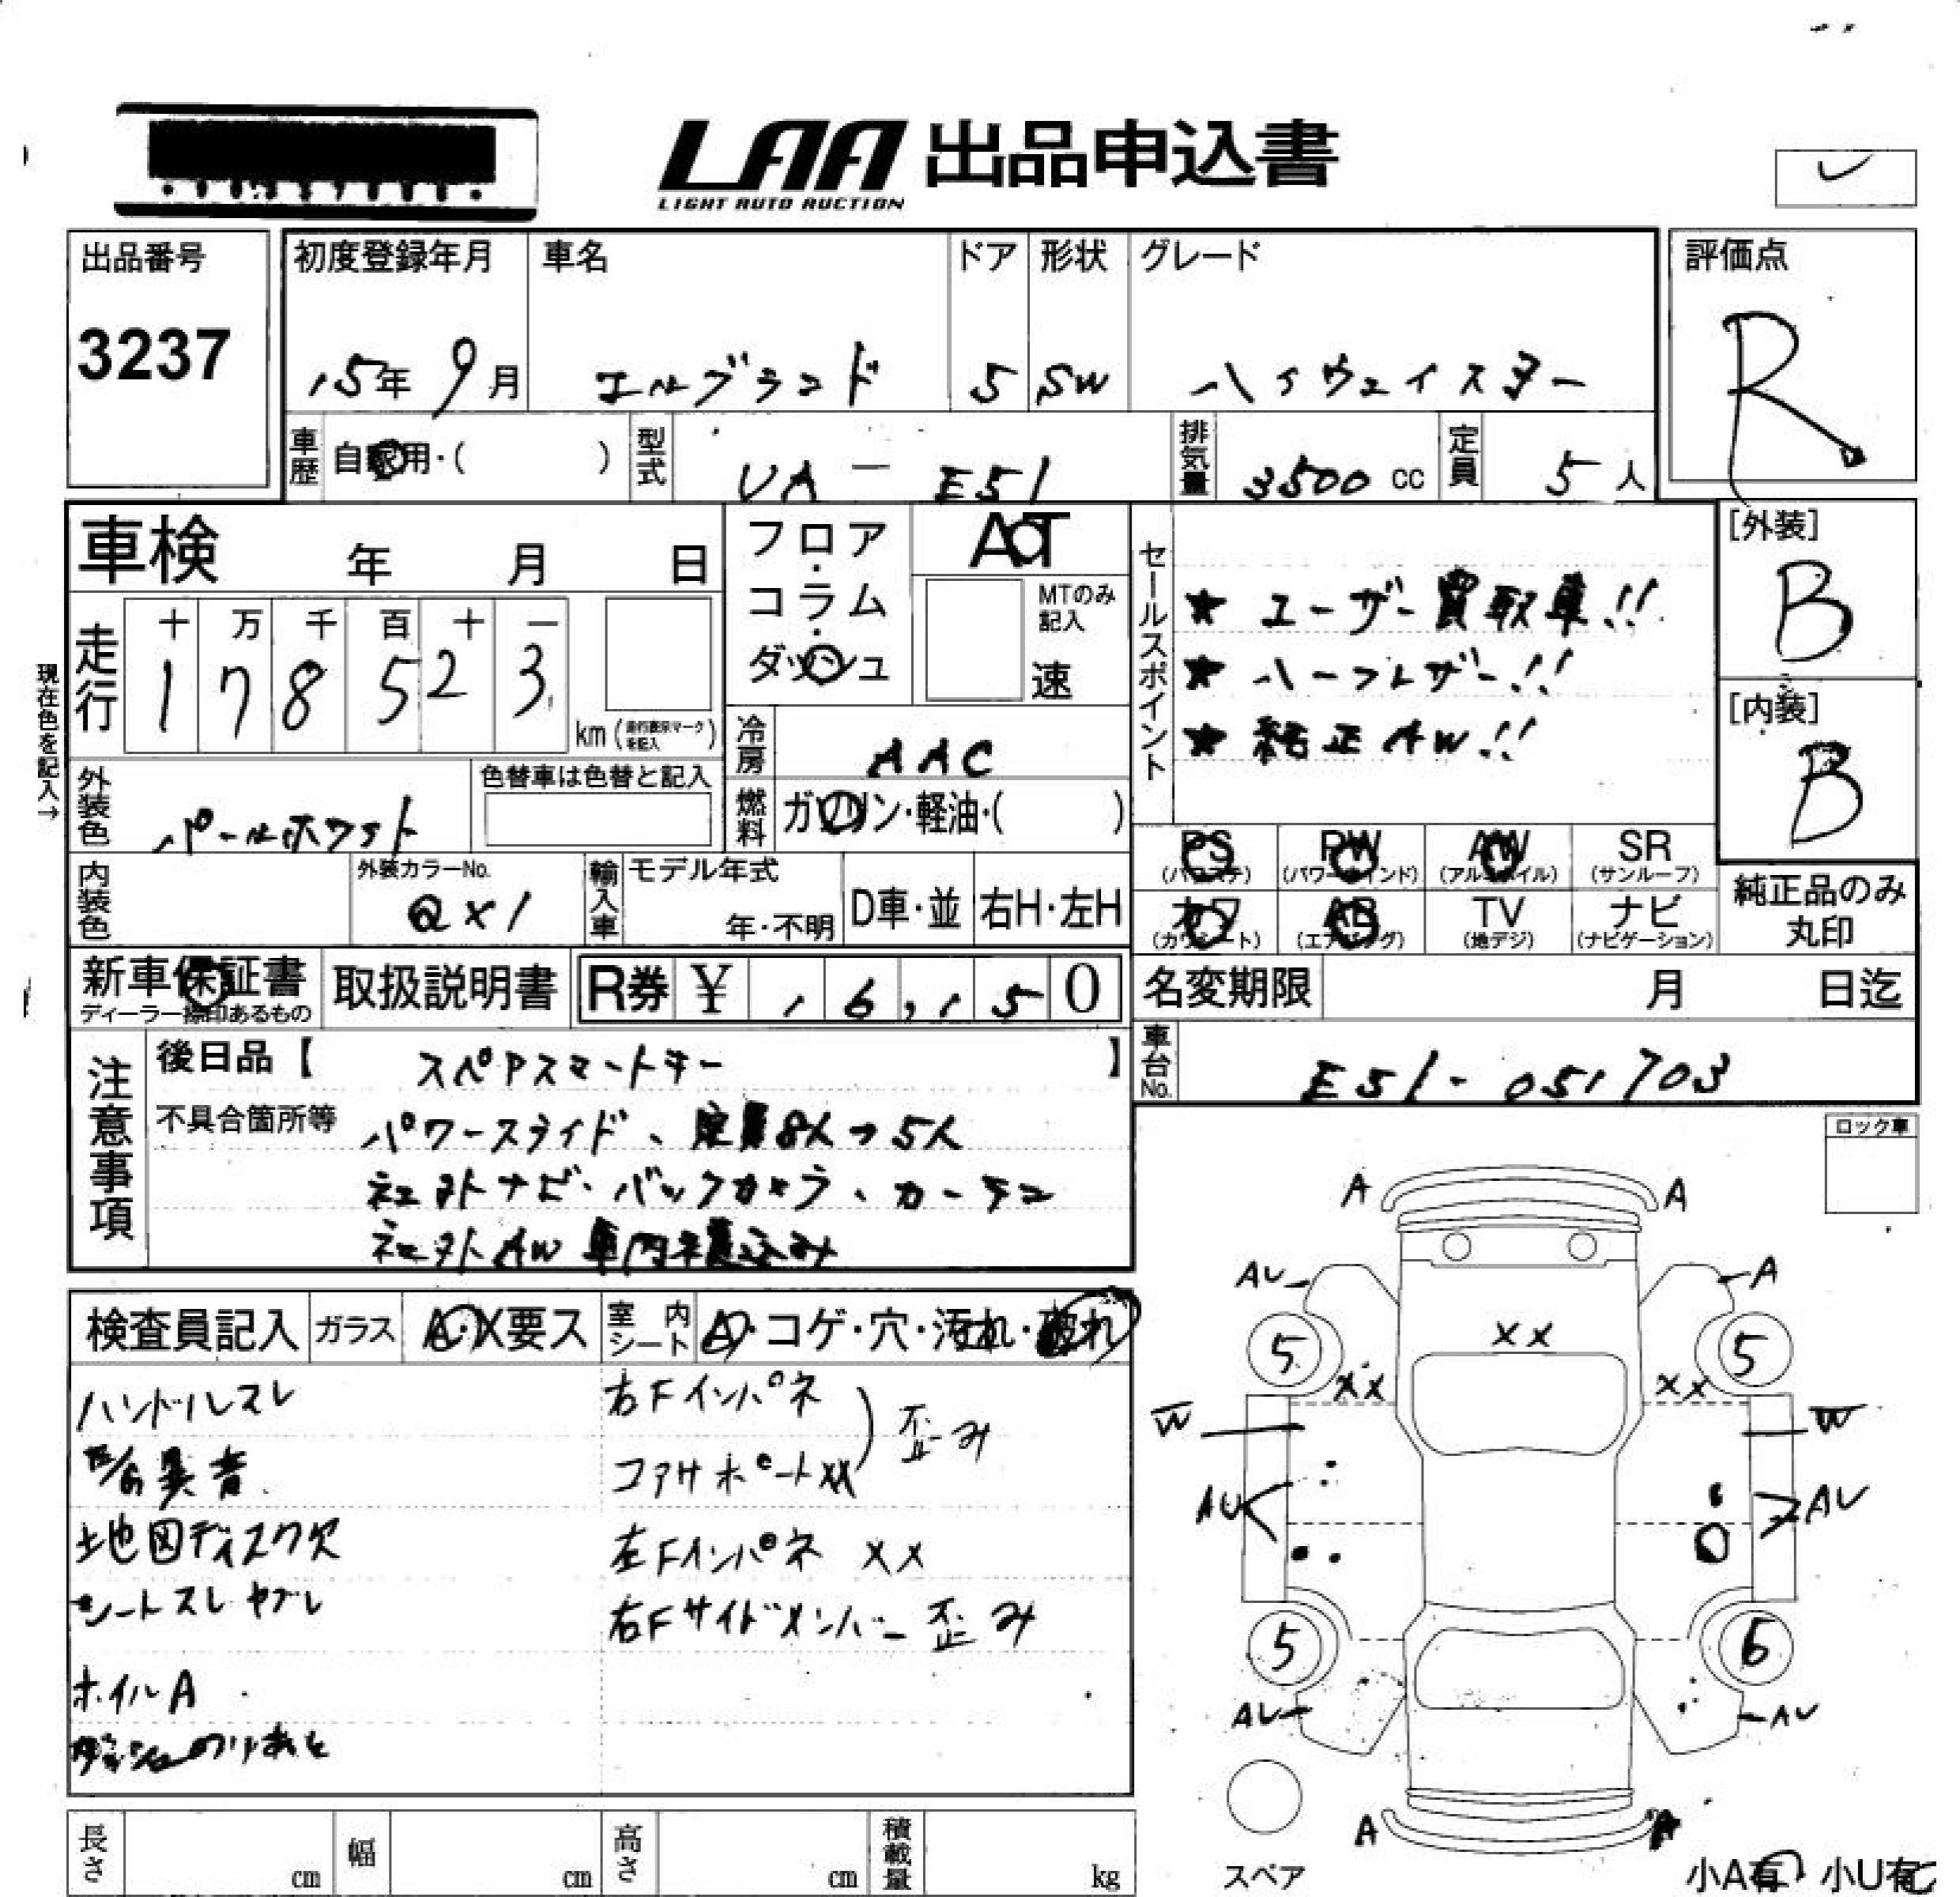 LAA 出品申込書
LIGHT AUTO AUCTION
出品番号
3237
初度登録年月
15年 9月
車名
エルグランド
ドア
5
形状
SW
グレード
ハイウェイスター
評価点
R
車歴 自家用・( )
型式 UA-E51
排気量 3500 cc
定員 5 人
車検 年 月 日
フロア・コラム・ダッシュ
AT
MTのみ記入
速
セールスポイント
★ ユーザー買取車!!
★ ハーフレザー!!
★ 純正AW!!
[外装]
B
[内装]
B
現在色を記入→
走行
十 万 千 百 十 一
1 7 8 5 2 3
km (走行表示マークを記入)
冷房 AAC
燃料 ガソリン・軽油・( )
外装色 パールホワイト
色替車は色替と記入
内装色
外装カラーNo.
QX1
輸入車
モデル年式
年・不明
D車・並
右H・左H
PS (パワステ)
PW (パワーウインド)
AW (アルミホイル)
SR (サンルーフ)
カワ (カワシート)
AB (エアバッグ)
TV (地デジ)
ナビ (ナビゲーション)
純正品のみ丸印
新車保証書
ディーラー捺印あるもの
取扱説明書
R券 ¥ 16,150
名変期限 月 日迄
車台No. E51-051703
注意事項
後日品【 スペアスマートキー 】
不具合箇所等 パワースライド、定員8人→5人
社外ナビ・バックカメラ、カーテン
社外AW 車内積込み
ロック車
検査員記入
ガラス A・X要ス
室内シート A・コゲ・穴・汚れ・破れ
ハンドルスレ
異音
地図ディスク欠
シートスレ ヤブレ
ホイルA
のりあと
右Fインパネ
コアサポートXX
歪み
左Fインパネ XX
右Fサイドメンバー 歪み
A A
AU A
XX
5 5
XX XX
W W
AU AU
5 6
AU AU
A A
スペア
小A有 小U有
長さ cm
幅 cm
高さ cm
積載量 kg